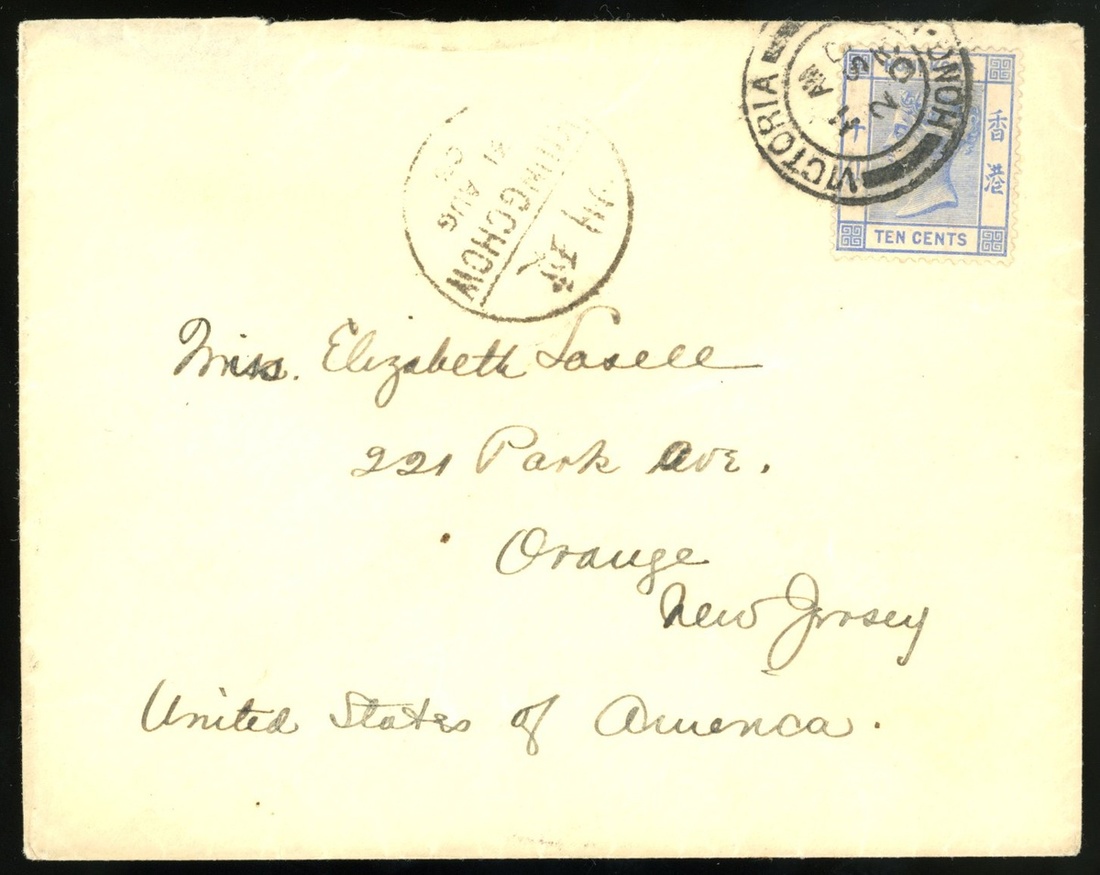 VICTORIA
HONG
11 AM
香港
TEN CENTS
AUG
州
Miss. Elizabeth Lasell
221 Park Ave.
Orange
New Jersey
United States of America.